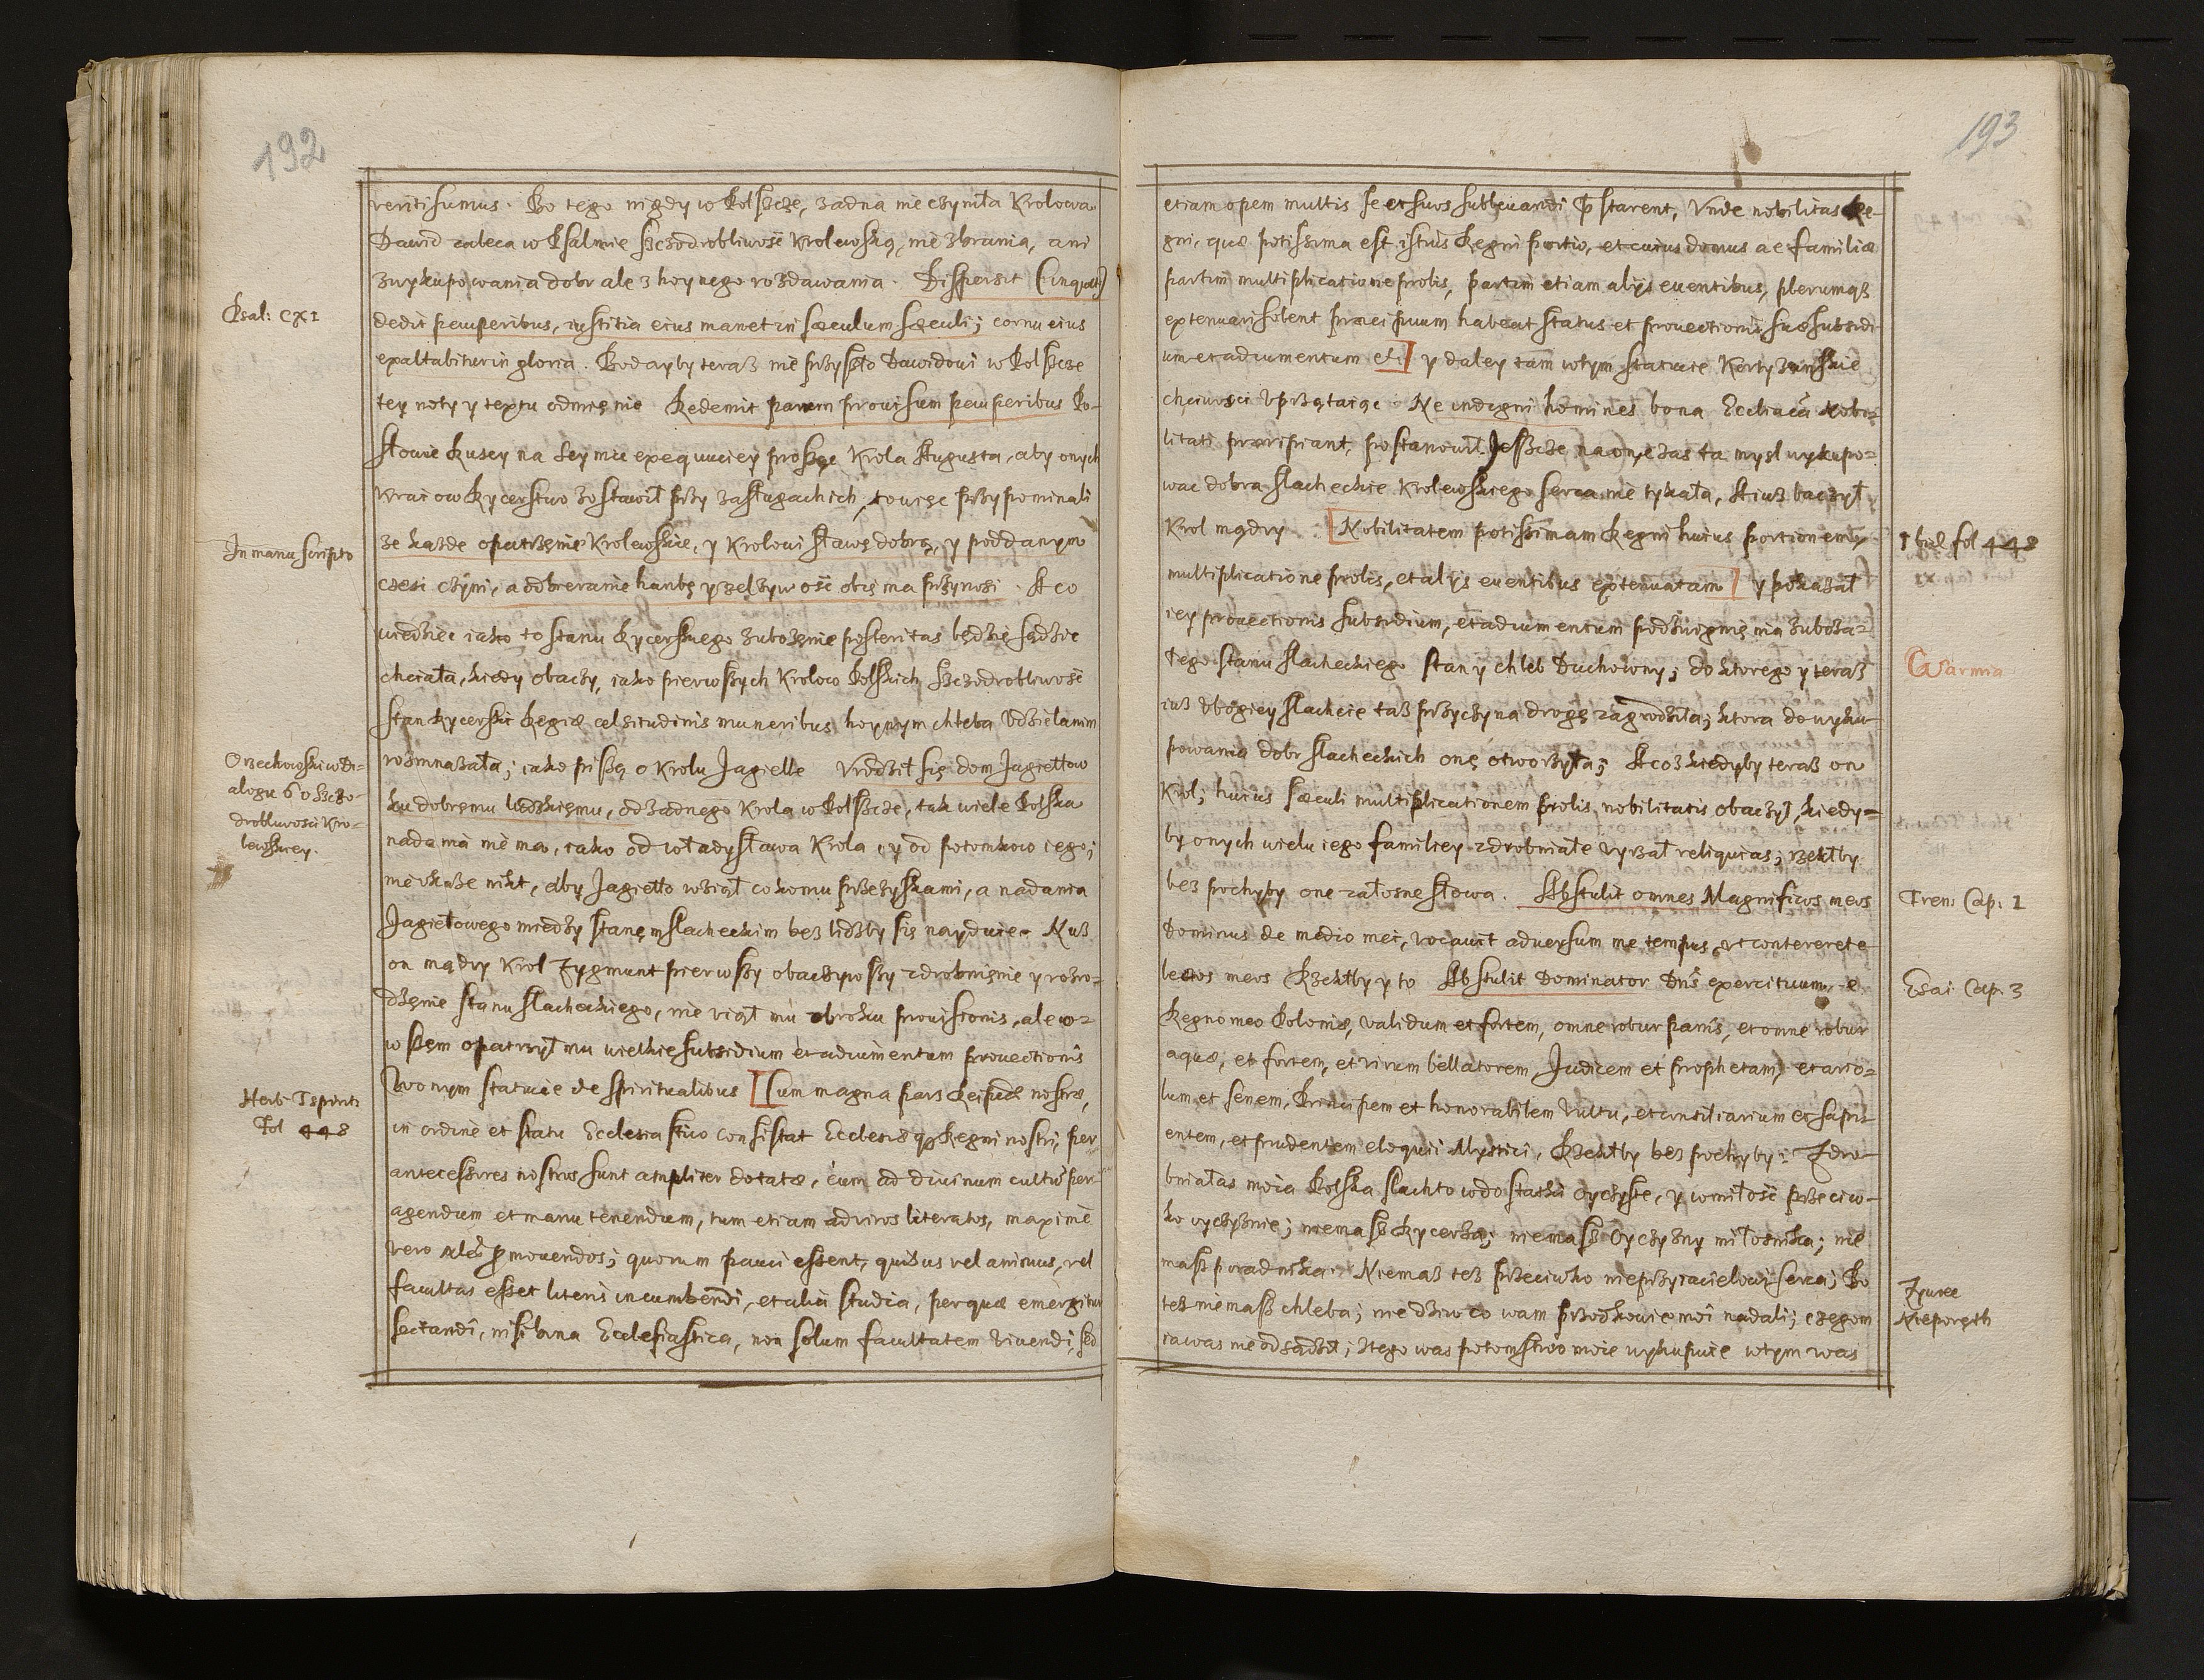 192
veritisumus. Bo tego nigdy w Polszcze, żadna nie czyniła Krolowa
Dawid zaleca w Psalmie szczodrobliwość Krolewską, nie zbrania, ani
z wykupowania dobr ale z hoynego rozdawania. Dispersit (inquit)
Psal: CXI
dedit pauperibus, iustitia eius manet in sæculum sæculi; cornu eius
exaltabitur in gloria. Bodayby teraz nie przyszło Dawidowi w Polszcze
tey noty y textu odmięnic Redemit panem provisum pauperibus Po-
słowie Ruscy na Seymie exequuciey prosząc Krola Augusta, aby onych
Rycerstwo zostawił przy zasługach ich, to więc przypominali
In manuscripto
że każde opatrzęnie Krolewskie, y Krolowi sławę dobrą, y poddanym
czesi czyni, a odbieranie hanbę y zelżywość obięma przynosi. A co
wiedzieć iako to stanu Rycerskiego zubożęnie posteritas będzie sądzić
chciała, kiedy obaczy, iako pierwszych Krolow Polskich szczodrobliwość
stan Rycerski Regiæ celsitudinis muneribus hoynym chleba udzielanim
Orzechowski w Di-
alogu 6 o szczo-
drobliwości Kro-
lewskiey.
rozmnażała; iako piszą o Krolu Jagielle Vrodził się dom Jagiełłow
ku dobręmu ludzkięmu, od żadnego Krola w Polszcze, tak wiele Polska
nadania nie ma, iako od Władysława Krola, y od potomkow iego;
nie ukaże nikt, aby Jagiełło wziął co komu przezyskami, a nadania
Jagiełowego miedzy stanęm slacheckim bez lidzby się nayduie. Nuż
on mądry Krol Zygmunt pierwszy obaczywszy zdrobnięnie y rozro-
dzęnie stanu slacheckiego, nie uiął mu obroku provisionis, ale o-
wszem opatrzył mu wielkie subsidium et adiumentum provectionis
Herb: T spirit:
Fol 448
W onym statucie de spiritualibus [Cum magna pars Reipub nostræ,
in ordine et statu Ecclesiastico consistat Ecclesiæq Regni nostri, per
antecessores nostros sunt ampliter dotatæ, cum ad divinum cultū per-
agendum et manu tenendum, tum etiam ad viros literatos, maximè
vero promovendos; quorum pauci essent, quibus vel animus, vel
facultas esset literis incumbendi, et alia studia, per quæ emergitur
sectandi, nisi bona Ecclesiastica, non solum facultatem vivendi, sed
193
etiam opem multis se et suos sublevandi præstarent, Unde nobilitas Re-
gni, quæ potissima est istius Regni portio, et cuius domus ac familiæ
partim multiplicatione prolis, partim etiam alijs eventibus, plerumq3
extenuari solent præcipuum habeat status et provectionis suæ subsidi
um et adiumentum etc] y daley tam w tym statucie Kortyzanskie
chciwości uprzątaiąc: Ne indigni homines bona Ecclīaca Nobi-
litati præripiant, postanowił. Jeszcze na on czas ta mysl wykupo-
wać dobra slacheckie Krolewskiego serca nie tykała, A iuż baczył
Krol mądry [Nobilitatem potissimam Regni huius portionem
† ibid fol 448
multiplicatione prolis, et alijs eventibus extenuatam] y pokazał
iey provectionis subsidium, et adiumentum podzwignięnia zuboża-
łego stanu slacheckiego stan y chleb Duchowny; do ktorego y teraz
Warmia
iuż ubogiey slachcie taż przyczyna drogę zagrodziła; ktora do wyku-
powania dobr slacheckich onę otworzyła; A coż kiedyby teraz on
Krol; huius sæculi multiplicationem prolis nobilitatis obaczył, kiedy-
by onych wielu iego familiey zdrobniałe uyrzał reliquias; rzekłby
bez pochyby one żałosne słowa. Abstulit omnes Magnificos meos
Tren: Cap: 1
Dominus de medio mei, vocavit adversum me tempus, ut contereret e
lectos meos Rzekłby y to Abstulit Dominator Dns exercituum e
Esai: Cap: 3
Regno meo Poloniæ, validum et fortem, omne robur panis, et omne robur
aquæ, et fortem, et virum bellatorem, Judicem et prophetam, et ario-
lum et senem, Principem et honorabilem vultu, et consiliarium et sapi-
entem, et prudentem eloquii Mystici, Rzekłby bez pochyby: Zdro-
bniałas moia Polska slachto w dostatki oyczyste, y w miłość przeciw-
ko oyczyznie; niemasz Rycerza; niemasz Oyczyzny miłosnika; nie
masz poradnika. Niemasz też przeciwko nieprzyiacielowi serca; Bo
też niemasz chleba; nie dziw co wam przodkowie moi nadali; czegom
Zywiec
Nieporęth
ia was nie odsądził; z tego was potomstwo moie wykupuie w tym was